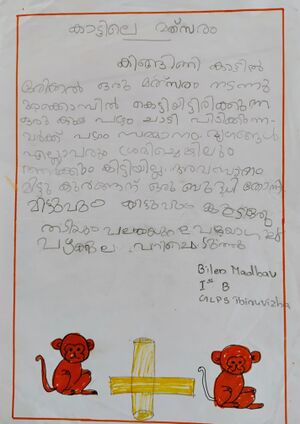 കാട്ടിലെ മത്സരം
കിങ്ങിണി കാട്ടിൽ
ഒരിക്കൽ ഒരു മത്സരം നടന്നു
മരക്കൊമ്പിൽ കെട്ടിയിട്ടിരിക്കുന്ന
ഒരു കുല പഴം ചാടി പിടിക്കുന്ന-
വർക്ക് പഴം സമ്മാനം മൃഗങ്ങൾ
എല്ലാവരും ശ്രമിച്ചെങ്കിലും
ആർക്കും കിട്ടിയില്ല അവസാനം
മിട്ടു കുരങ്ങന് ഒരു ബുദ്ധി തോന്നി
മിട്ടുവും കിട്ടുവും കൂട്ടുകാരും
പഴക്കുല
Bilen Madhav
Ist B
GLPS Thiruvizha